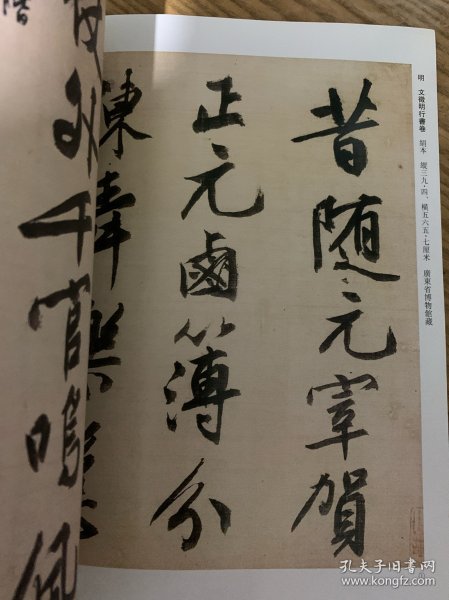 明 文徵明行書卷 絹本 縱三九·四、橫五六五·七厘米 廣東省博物館藏
昔随元宰賀
正元鹵簿分
陳
外千官鳴
孔夫子旧书网
www.kongfz.com